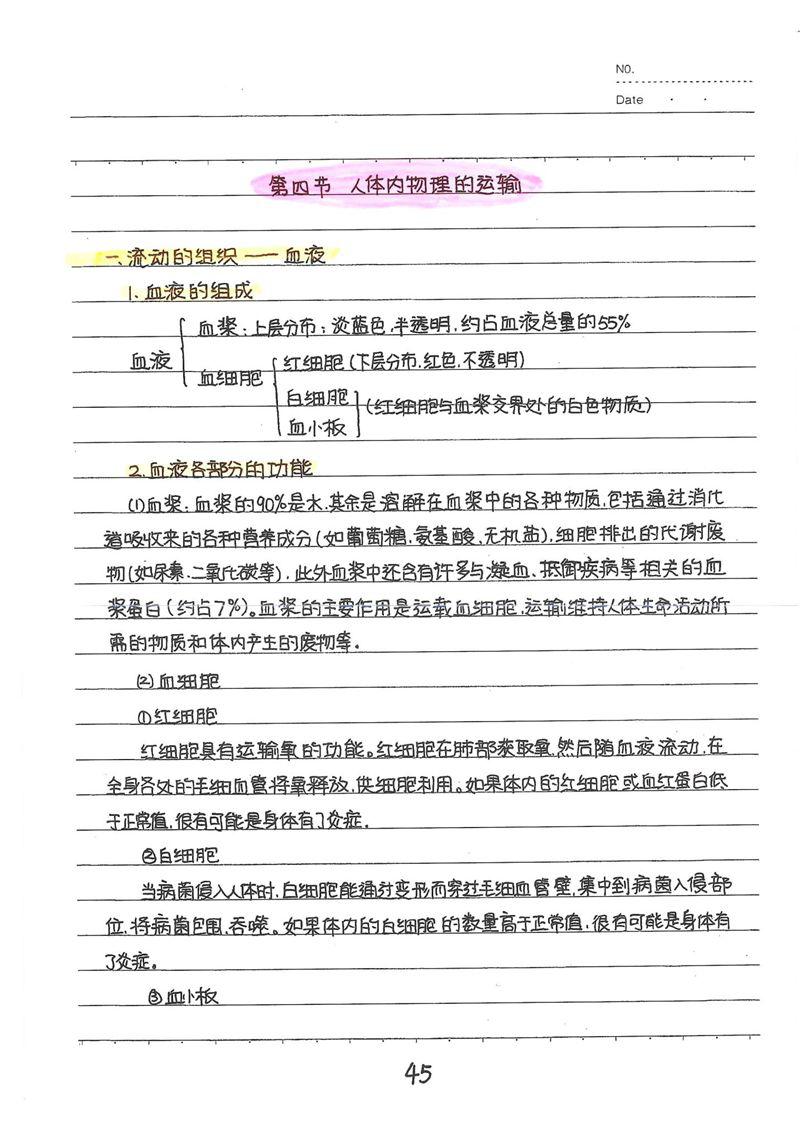 NO.
Date
第四节 人体内物理的运输
一、流动的组织——血液
1. 血液的组成
血浆：上层分布；淡蓝色，半透明，约占血液总量的55%
血液
红细胞(下层分布，红色，不透明)
血细胞
白细胞
(红细胞与血浆交界处的白色物质)
血小板
2. 血液各部分的功能
(1)血浆：血浆的90%是水，其余是溶解在血浆中的各种物质，包括通过消化
道吸收来的各种营养成分(如葡萄糖、氨基酸、无机盐)，细胞排出的代谢废
物(如尿素、二氧化碳等)，此外血浆中还含有许多与凝血、抵御疾病等相关的血
浆蛋白(约占7%)。血浆的主要作用是运载血细胞，运输维持人体生命活动所
需的物质和体内产生的废物等。
(2)血细胞
①红细胞
红细胞具有运输氧的功能。红细胞在肺部获取氧，然后随血液流动，在
全身各处的毛细血管将氧释放，供细胞利用。如果体内的红细胞或血红蛋白低
于正常值，很有可能是身体有了炎症.
②白细胞
当病菌侵入人体时，白细胞能通过变形而穿过毛细血管壁，集中到病菌入侵部
位，将病菌包围、吞噬。如果体内的白细胞的数量高于正常值，很有可能是身体有
了炎症。
③血小板
45